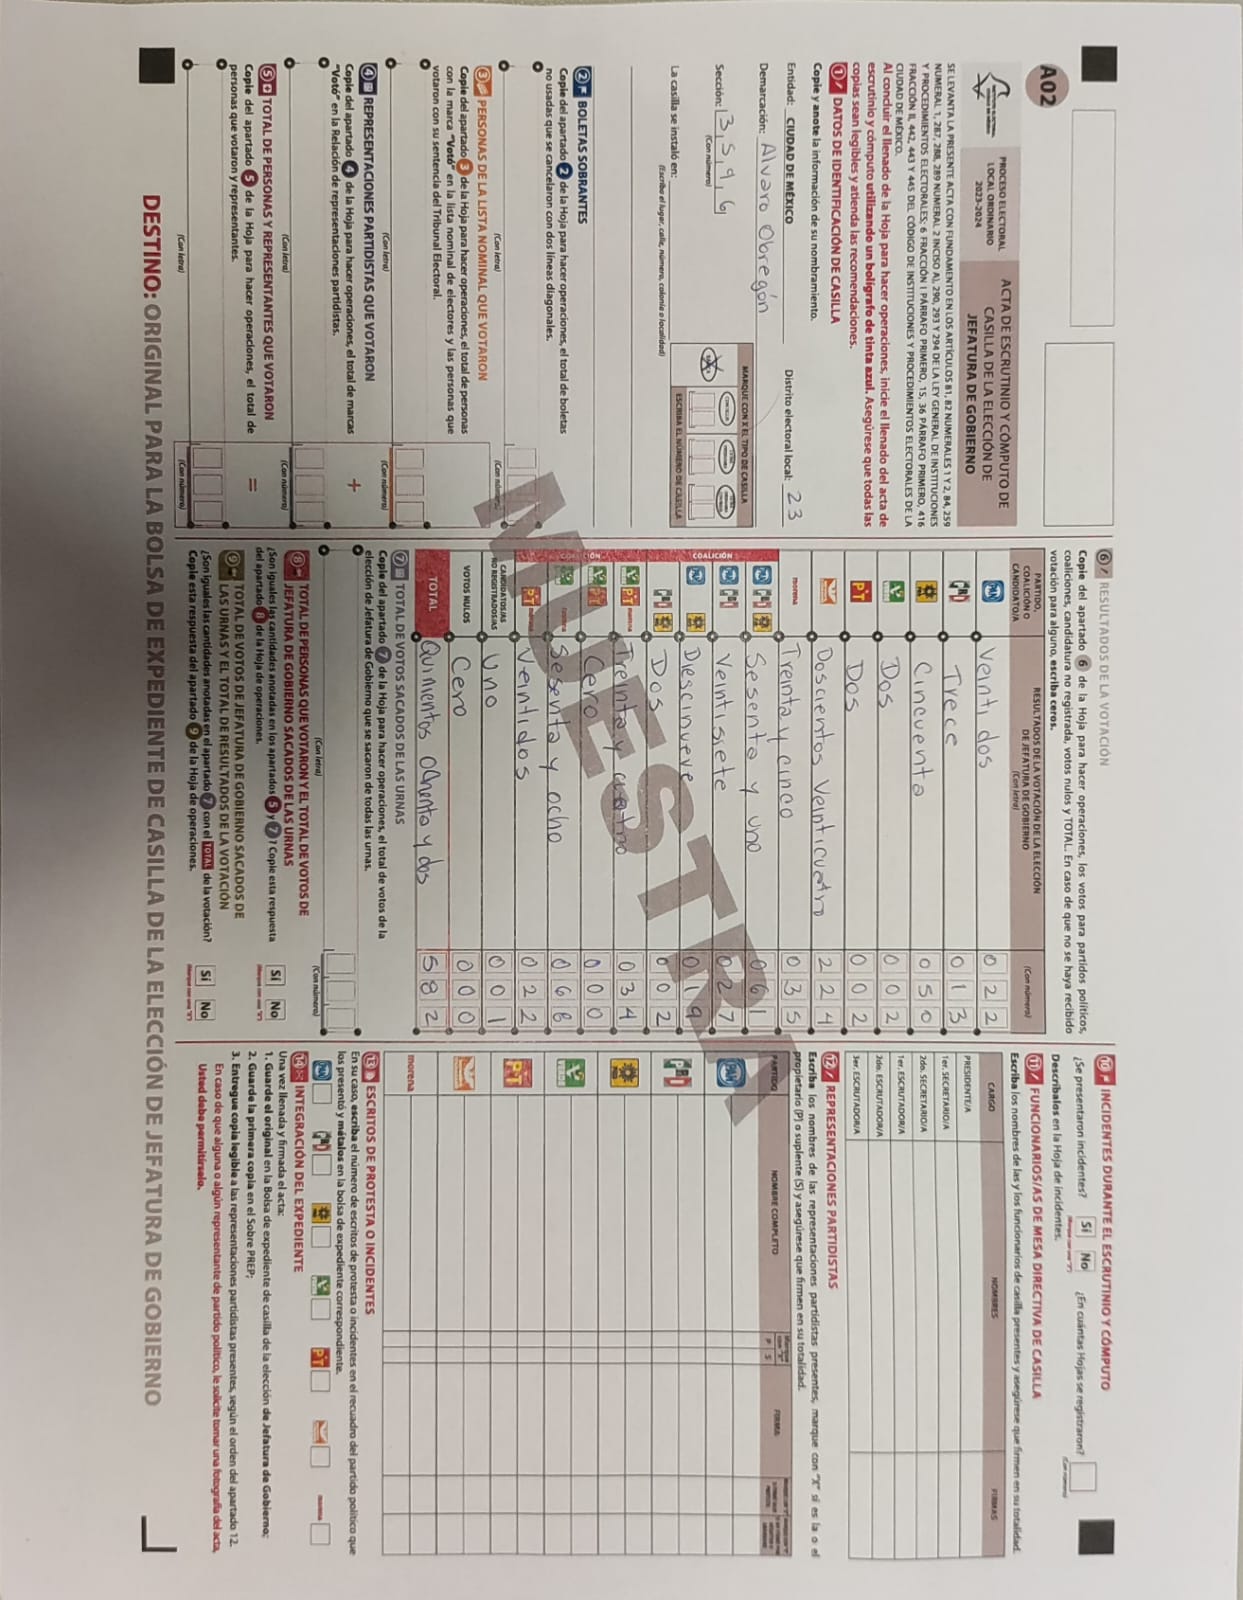 A02
PROCESO ELECTORAL
LOCAL ORDINARIO
2023-2024
ACTA DE ESCRUTINIO Y CÓMPUTO DE
CASILLA DE LA ELECCIÓN DE
JEFATURA DE GOBIERNO
SE LEVANTA LA PRESENTE ACTA CON FUNDAMENTO EN LOS ARTÍCULOS 81, 82 NUMERALES 1 Y 2, 84, 259
NUMERAL 1, 287, 288, 289 NUMERAL 2 INCISO A), 290, 293 Y 294 DE LA LEY GENERAL DE INSTITUCIONES
Y PROCEDIMIENTOS ELECTORALES; 6 FRACCIÓN I PÁRRAFO PRIMERO, 15, 36 PÁRRAFO PRIMERO, 416
FRACCIÓN II, 442, 443 Y 445 DEL CÓDIGO DE INSTITUCIONES Y PROCEDIMIENTOS ELECTORALES DE LA
CIUDAD DE MÉXICO.
Al concluir el llenado de la Hoja para hacer operaciones, inicie el llenado del acta de
escrutinio y cómputo utilizando un bolígrafo de tinta azul. Asegúrese que todas las
copias sean legibles y atienda las recomendaciones.
1 DATOS DE IDENTIFICACIÓN DE CASILLA
Copie y anote la información de su nombramiento.
Entidad: CIUDAD DE MÉXICO Distrito electoral local: 23
Demarcación: Alvaro Obregón
Sección: 3 5 9 6
(Con número)
MARQUE CON X EL TIPO DE CASILLA
ESCRIBA EL NÚMERO DE CASILLA
La casilla se instaló en:
(Escriba el lugar, calle, número, colonia o localidad)
2 BOLETAS SOBRANTES
Copie del apartado 2 de la Hoja para hacer operaciones, el total de boletas
no usadas que se cancelaron con dos líneas diagonales.
(Con letra) (Con número)
3 PERSONAS DE LA LISTA NOMINAL QUE VOTARON
Copie del apartado 3 de la Hoja para hacer operaciones, el total de personas
con la marca "Votó" en la lista nominal de electores y las personas que
votaron con su sentencia del Tribunal Electoral.
(Con letra) (Con número)
+
4 REPRESENTACIONES PARTIDISTAS QUE VOTARON
Copie del apartado 4 de la Hoja para hacer operaciones, el total de marcas
"Votó" en la Relación de representaciones partidistas.
(Con letra) (Con número)
=
5 TOTAL DE PERSONAS Y REPRESENTANTES QUE VOTARON
Copie del apartado 5 de la Hoja para hacer operaciones, el total de
personas que votaron y representantes.
(Con letra) (Con número)
6 RESULTADOS DE LA VOTACIÓN
Copie del apartado 6 de la Hoja para hacer operaciones, los votos para partidos políticos,
coaliciones, candidatura no registrada, votos nulos y TOTAL. En caso de que no se haya recibido
votación para alguno, escriba ceros.
PARTIDO,
COALICIÓN O
CANDIDATO/A
RESULTADOS DE LA VOTACIÓN DE LA ELECCIÓN
DE JEFATURA DE GOBIERNO
(Con letra)
(Con número)
PAN Veinti dos 0 2 2
PRI Trece 0 1 3
Cincuenta 0 5 0
VERDE Dos 0 0 2
PT Dos 0 0 2
Doscientos Veinticuatro 2 2 4
morena Treinta y cinco 0 3 5
COALICIÓN
PAN PRI Sesenta y uno 0 6 1
PAN PRI Veintisiete 0 2 7
PAN Diescinueve 0 1 9
PRI Dos 0 0 2
COALICIÓN
VERDE PT morena Treinta y cuatro 0 3 4
VERDE PT Cero 0 0 0
VERDE morena Sesenta y ocho 0 6 8
PT morena Veintidos 0 2 2
CANDIDATOS/AS
NO REGISTRADOS/AS Uno 0 0 1
VOTOS NULOS Cero 0 0 0
TOTAL Quinientos Ochenta y dos 5 8 2
7 TOTAL DE VOTOS SACADOS DE LAS URNAS
Copie del apartado 7 de la Hoja para hacer operaciones, el total de votos de la
elección de Jefatura de Gobierno que se sacaron de todas las urnas.
(Con letra) (Con número)
8 TOTAL DE PERSONAS QUE VOTARON Y EL TOTAL DE VOTOS DE
JEFATURA DE GOBIERNO SACADOS DE LAS URNAS
¿Son iguales las cantidades anotadas en los apartados 5 y 7? Copie esta respuesta
del apartado 8 de la Hoja de operaciones.
Sí No
9 TOTAL DE VOTOS DE JEFATURA DE GOBIERNO SACADOS DE
LAS URNAS Y EL TOTAL DE RESULTADOS DE LA VOTACIÓN
¿Son iguales las cantidades anotadas en el apartado 7 con el TOTAL de la votación?
Copie esta respuesta del apartado 9 de la Hoja de operaciones.
Sí No
10 INCIDENTES DURANTE EL ESCRUTINIO Y CÓMPUTO
¿Se presentaron incidentes? Sí No ¿En cuántas Hojas se registraron?
(Con número)
Descríbalos en la Hoja de incidentes.
11 FUNCIONARIOS/AS DE MESA DIRECTIVA DE CASILLA
Escriba los nombres de las y los funcionarios de casilla presentes y asegúrese que firmen en su totalidad.
CARGO NOMBRES FIRMAS
PRESIDENTE/A
1er. SECRETARIO/A
2do. SECRETARIO/A
1er. ESCRUTADOR/A
2do. ESCRUTADOR/A
3er. ESCRUTADOR/A
12 REPRESENTACIONES PARTIDISTAS
Escriba los nombres de las representaciones partidistas presentes, marque con "X" si es la o el
propietario (P) o suplente (S) y asegúrese que firmen en su totalidad.
PARTIDO NOMBRE COMPLETO P S FIRMA
PAN
PRI
VERDE
PT
morena
13 ESCRITOS DE PROTESTA O INCIDENTES
En su caso, escriba el número de escritos de protesta o incidentes en el recuadro del partido político que
los presentó y métalos en la bolsa de expediente correspondiente.
PAN PRI VERDE PT morena
14 INTEGRACIÓN DEL EXPEDIENTE
Una vez llenada y firmada el acta:
1. Guarde el original en la Bolsa de expediente de casilla de la elección de Jefatura de Gobierno;
2. Guarde la primera copia en el Sobre PREP;
3. Entregue copia legible a las representaciones partidistas presentes, según el orden del apartado 12.
En caso de que alguna o algún representante de partido político, le solicite tomar una fotografía del acta,
Usted debe permitírselo.
MUESTRA
DESTINO: ORIGINAL PARA LA BOLSA DE EXPEDIENTE DE CASILLA DE LA ELECCIÓN DE JEFATURA DE GOBIERNO